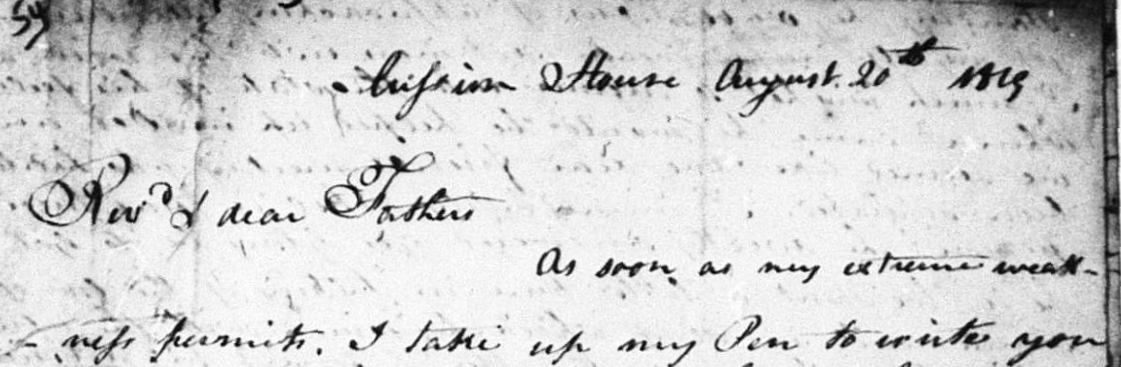 59
Mission House August. 20th 1819
Revd & dear Fathers
As soon as my extreme weak-
- ness permits, I take up my Pen to write you